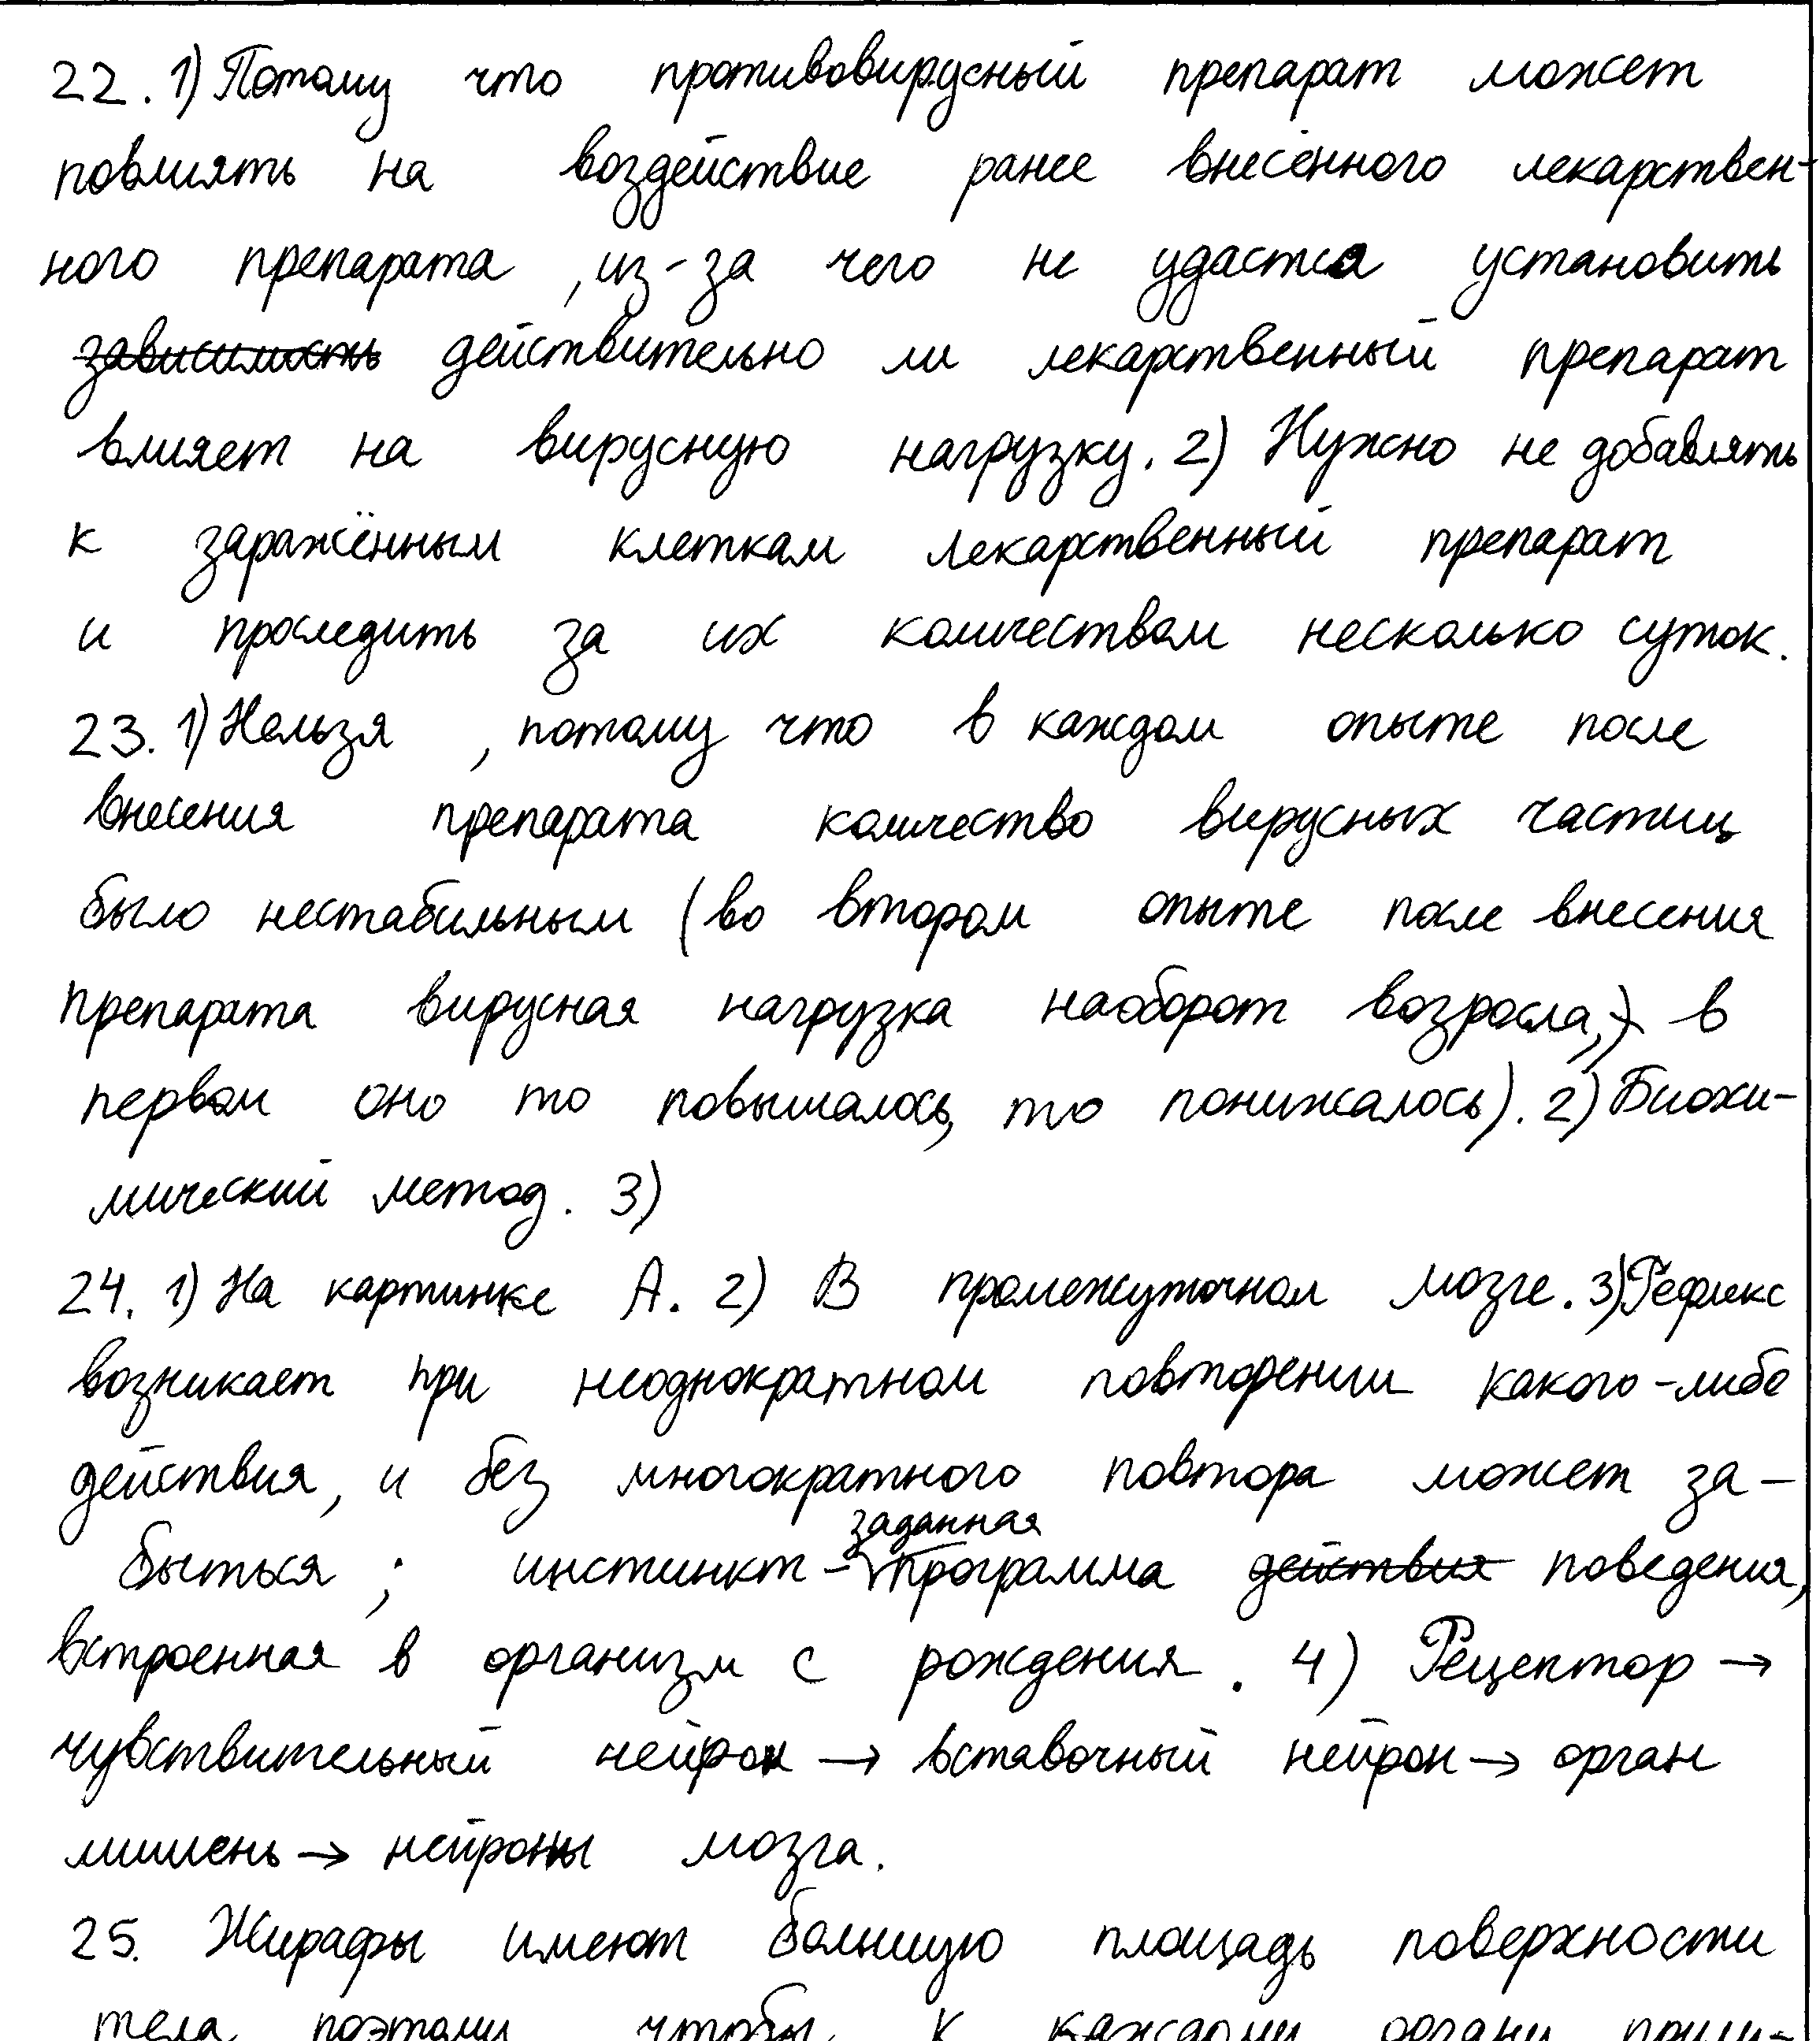 22. 1) Потому что противовирусный препарат может
повлиять на воздействие ранее внесённого лекарствен-
ного препарата, из-за чего не удастся установить
зависимость действительно ли лекарственный препарат
влияет на вирусную нагрузку. 2) Нужно не добавлять
к заражённым клеткам лекарственный препарат
и проследить за их количеством несколько суток.
23. 1) Нельзя, потому что в каждом опыте после
внесения препарата количество вирусных частиц
было нестабильным (во втором опыте после внесения
препарата вирусная нагрузка наоборот возросла, в
первом оно то повышалось, то понижалось). 2) Биохи-
мический метод. 3)
24. 1) На картинке А. 2) В промежуточном мозге. 3) Рефлекс
возникает при неоднократном повторении какого-либо
действия, и без многократного повтора может за-
быться; инстинкт - заданная программа действия поведения,
встроенная в организм с рождения. 4) Рецептор →
чувствительный нейрон → вставочный нейрон → орган
мишень → нейроны мозга.
25. Жирафы имеют большую площадь поверхности
тела поэтому чтобы к каждому органу